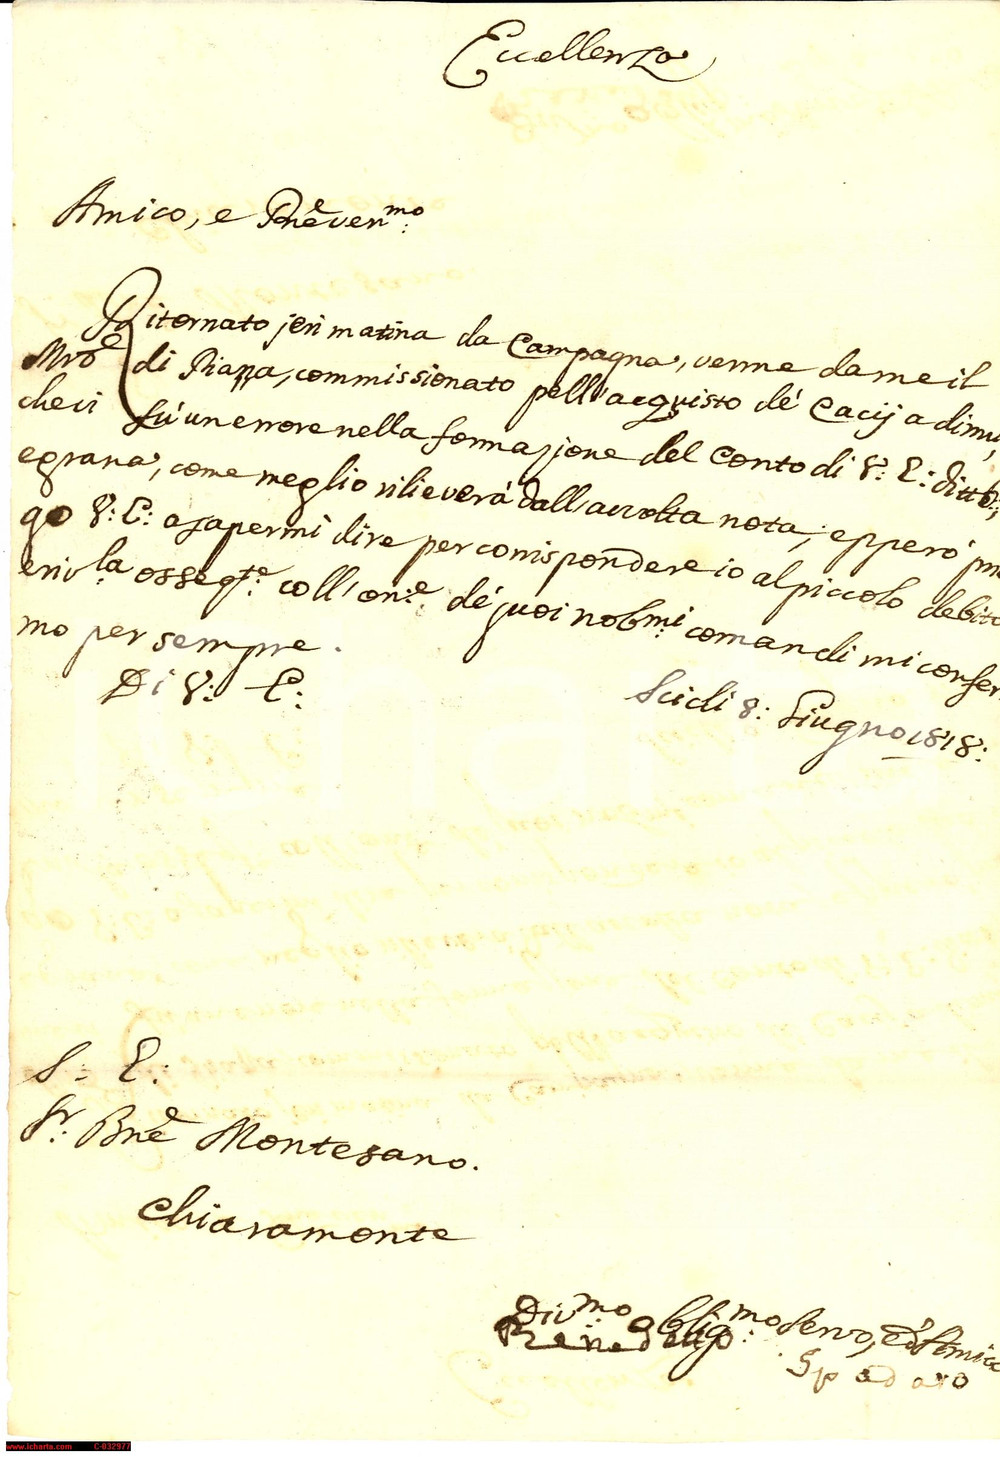 Eccellenza
Amico, e Pñe ven.mo
Ritornato jeri matina da Campagna, venne da me il
Mrõ di Piazza, commissionato pell'acquisto de' Cacij a dirmi,
che vi fu' un errore nella formazione del Conto di V: E: di
e grana, come meglio rilieverà dall'accolta nota; epperò pre
go V: E: a sapermi dire per corrispondere io al piccolo debito
eriv.la osseq.te coll'on.e de' suoi nobmi: comandi mi confer
mo per sempre.
Di V: E:
Scicli 8: Giugno 1818:
S: E:
Sr: Bñe Montesano.
Chiaramonte
Div.mo obblig.mo Servo, ed Amico
Benedetto Spadaro
www.icharta.com C-032977